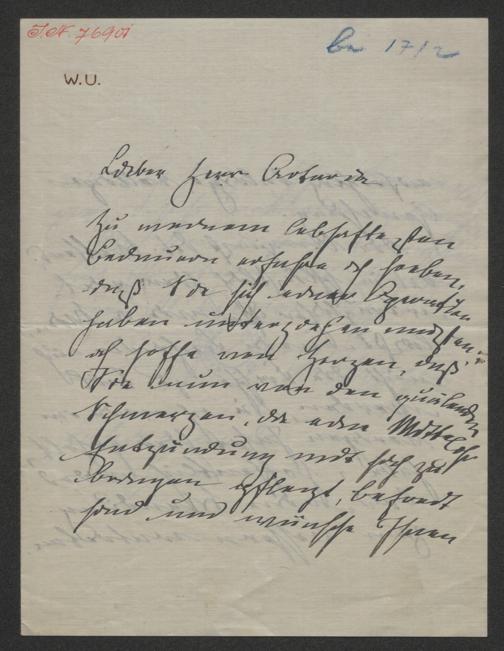 I.N. 76901
be 17/2
W.U.
Lieber Herr Artaria
Zu meinem lebhaftesten
Bedauern erfahre ich soeben,
daß Sie sich einer Operation
haben unterziehen müssen.
ich hoffe von Herzen, daß
Sie nun von den quälenden
Schmerzen, die eine Mittelohr
Entzündung mit sich zu
bringen pflegt, befreit
sind und wünsche Ihnen